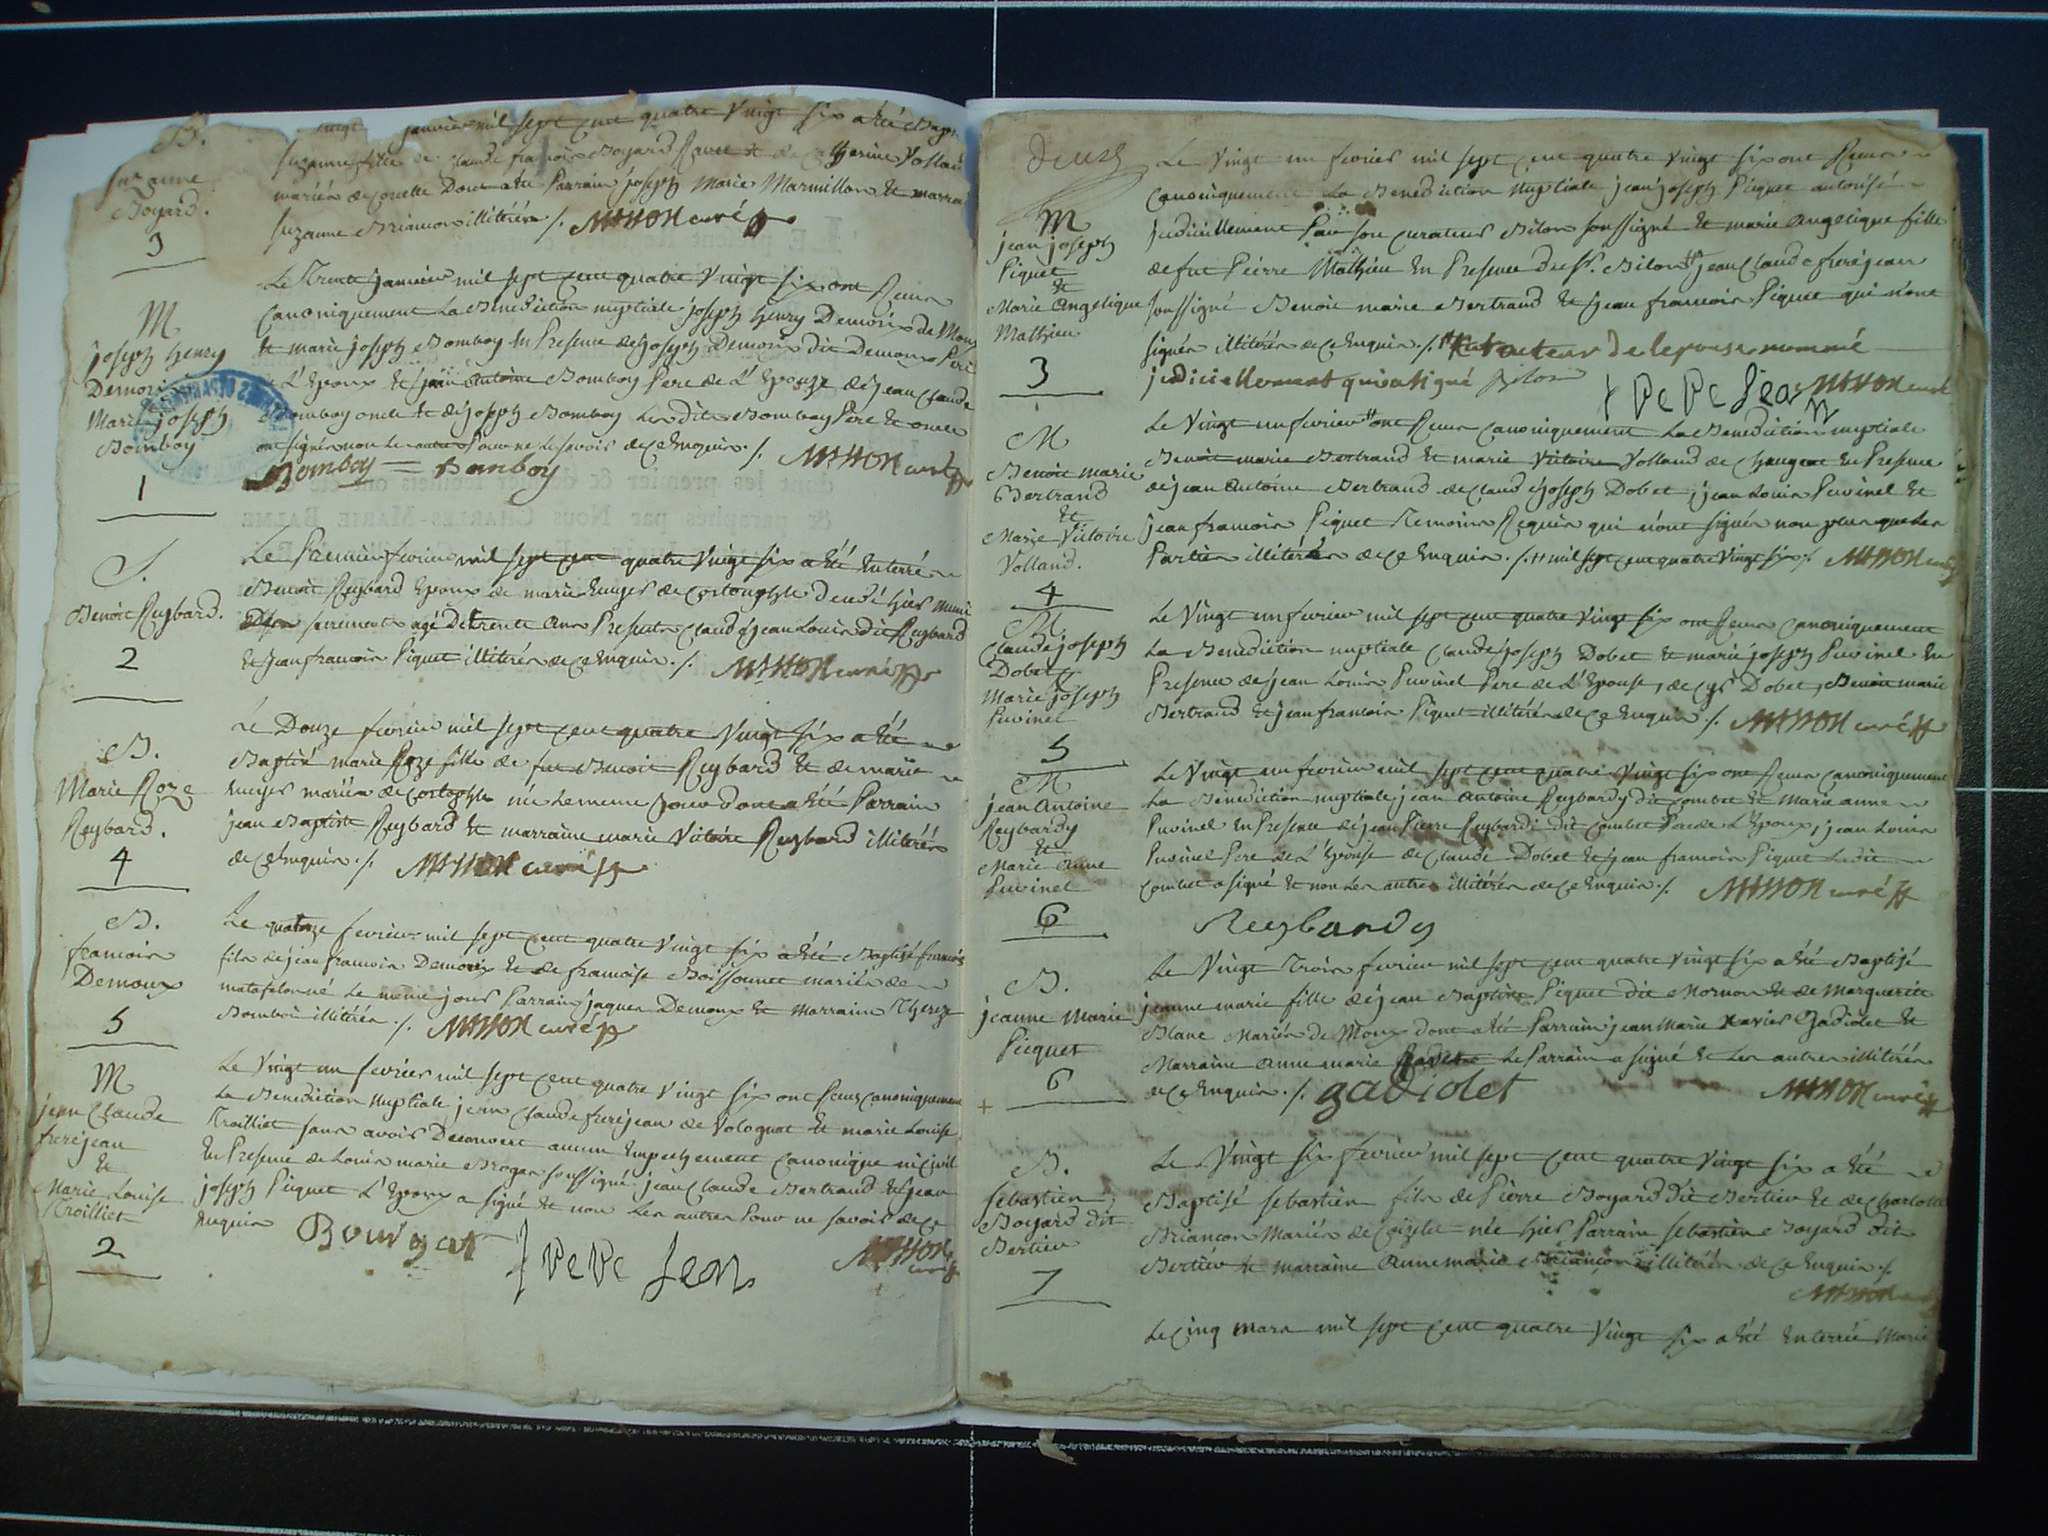 B.
Suzanne
Boyard.
3
vingt janvier mil sept cent quatre vingt six a été Bapt
Suzanne fille de Claude françois Boyard Ravet et de Catherine Volland
mariés de Dont a été Parrain joseph Marie Marmillon et marrai
Suzanne Briançon illitérés /. MASSON curé
M
joseph henry
Demoux
et
Marie joseph
Bomboy
1
Le Trente janvier mil sept cent quatre vingt six ont Reçus
Canoniquement La Benediction nuptiale joseph henry Demoux de Moux
et marie joseph Bomboy En Presence de joseph Demoux dit Demoux Pere
de L'Epoux et jean Antoine Bomboy Pere de L'Epouze de jean Claude
Bomboy oncle et de joseph Bomboy Lesdits Bomboy Pere et oncle
ont signés non Les autres Pour ne le savoir de ce Enquis ./. MASSON curé
Bomboy = Bomboy
S.
Benoit Reybard.
2
Le Premier fevrier mil sept cent quatre vingt six a été Enterré
Benoit Reybard Epoux de marie Enuyer de Cortouphle decedé hier muni
des sacrements agé De trente Ans Presents Claude jean Louis dit Reybard
et jean françois Piquet illitérés de ce Enquis ./. MASSON curé
B.
Marie Roze
Reybard.
4
Le Douze fevrier mil sept cent quatre vingt six a été
Baptisé marie Roze fille de fut Benoit Reybard et de marie
Enuyer mariés de Cortophle née Le meme jour dont a été Parrain
jean Baptiste Reybard et marraine marie Victoire Reybard illitérés
de ce Enquis ./. MASSON curé
B.
françois
Demoux
5
Le quatorze fevrier mil sept cent quatre vingt six a été Baptisé françois
fils de jean françois Demoux et de françoise Boissonnet mariés de
matafelon né Le meme jour Parrain jaques Demoux et Marraine Thereze
Bomboi illitérés ./. MASSON curé
M
jean Claude
frerejean
et
Marie Louise
Troilliet
2
Le Vingt un fevrier mil sept cent quatre vingt six ont Reçus canoniquement
La Benediction Nuptiale jean Claude frerejean de Volognat et marie Louise
Troilliet sans avoir Decouvert aucun Empechement canonique ni Civil
En Presence de Louis marie soussigné jean Claude Bertrand et jean
joseph Piquet L'Epoux a signé et non Les autres Pour ne savoir de ce
Enquis
f RePe Jean
MASSON curé
Deux
M
jean joseph
Piquet
et
Marie Angelique
Mathieu
3
Le Vingt un fevrier mil sept cent quatre vingt six ont Reçus
Canoniquement La Benediction Nuptiale jean joseph Piquet autorisé
judiciellement Par son curateur Bilon soussigné et marie Angelique fille
de fut Pierre Mathieu En Presence du Sr. Bilon jean Claude frerejean
soussigné Benoit marie Bertrand et jean françois Piquet qui n'ont
signés illitérés de ce Enquis ./. curateur de lepouse nommé
judiciellement qui a signé Bilon f RePe Jean MASSON curé
M
Benoit marie
Bertrand
et
Marie Victoire
Volland.
4
Le Vingt un fevrier # ont Reçus canoniquement La Benediction nuptiale
Benoit marie Bertrand et marie Victoire Volland de Changeat En Presence
de jean Antoine Bertrand de Claude joseph Dobet jean Louis Puvinel et
jean françois Piquet Temoins Requis qui n'ont signés non plus que Les
Parties illitérés de ce Enquis ./. # mil sept cent quatre vingt six ./. MASSON curé
M.
Claude joseph
Dobet
et
Marie joseph
Puvinel
5
Le Vingt un fevrier mil sept cent quatre vingt six ont Reçus Canoniquement
La Benediction nuptiale Claude joseph Dobet et marie joseph Puvinel En
Presence de jean Louis Puvinel Pere de L'Epouse, de Dobet, Benoit marie
Bertrand et jean françois Piquet illitérés de ce Enquis ./. MASSON curé
M
jean Antoine
Reybardy
et
Marie Anne
Puvinel
6
Le Vingt un fevrier mil sept cent quatre vingt six ont Reçus canoniquement
La Benediction nuptiale jean Antoine Reybardy dit Combet et Marie anne
Puvinel En Presence de jean Pierre Reybardi dit Combet Pere de L'Epoux, jean Louis
Puvinel Pere de L'Epouse de Claude Dobet et jean françois Piquet Ledit
Combet a signé et non Les autres illitérés de ce Enquis ./. MASSON curé
Reybardy
B.
jeanne Marie
Piquet
6
Le Vingt Trois fevrier mil sept cent quatre vingt six a été Baptisé
jeanne marie fille de jean Baptiste Piquet dit Mornon et de Marguerite
Blanc Mariés de Moux dont a été Parrain jean Marie Xavier Gadiolet et
Marraine Anne marie Le Parrain a signé et Les autres illitérés
de ce Enquis ./. gadiolet MASSON curé
B.
Sébastien
Boyard dit
Bertieu
7
Le Vingt six fevrier mil sept cent quatre vingt six a été
Baptisé sébastien fils de Pierre Boyard dit Bertieu et de Charlotte
Briancon Mariés de née hier Parrain sébastien Boyard dit
Bertiev et marraine Anne marie Briançon illitérés de ce Enquis ./.
MASSON curé
Le Cinq mars mil sept cent quatre vingt six a été Enterrée Marie